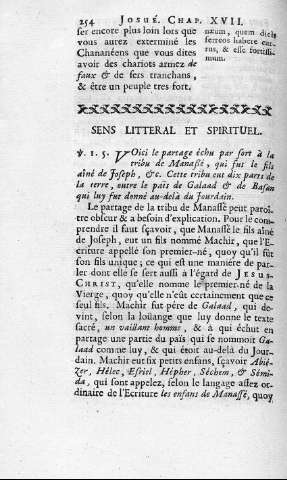 254 JOSUÉ. CHAP. XVII.
ser encore plus loin lors que
vous aurez exterminé les
Chananéens que vous dites
avoir des chariots armez de
faux & de fers tranchans,
& être un peuple tres fort.
næum, quem dicis
ferreos habere cur-
rus, & esse fortissi-
mum.
SENS LITTERAL ET SPIRITUEL.
℣. 1. 5. VOici le partage échu par sort à la
tribu de Manassé, qui fut le fils
aîné de Joseph, &c. Cette tribu eut dix parts de
la terre, outre le païs de Galaad & de Basan
qui luy fut donné au-delà du Jourdain.
Le partage de la tribu de Manassé peut paroî-
tre obscur & a besoin d'explication. Pour le com-
prendre il faut sçavoir, que Manassé le fils aîné
de Joseph, eut un fils nommé Machir, que l'E-
criture appelle son premier-né, quoy qu'il fût
son fils unique; ce qui est une maniére de par-
ler dont elle se sert aussi à l'égard de JESUS-
CHRIST, qu'elle nomme le premier-né de la
Vierge, quoy qu'elle n'eût certainement que ce
seul fils. Machir fut pére de Galaad, qui de-
vint, selon la loüange que luy donne le texte
sacré, un vaillant homme, & à qui échut en
partage une partie du païs qui se nommoit Ga-
laad comme luy, & qui étoit au-delà du Jour-
dain. Machir eut six petits enfans, sçavoir Abié-
zer, Hélec, Esriel, Hépher, Séchem, & Sémi-
da, qui sont appelez, selon le langage assez or-
dinaire de l'Ecriture les enfans de Manassé, quoy